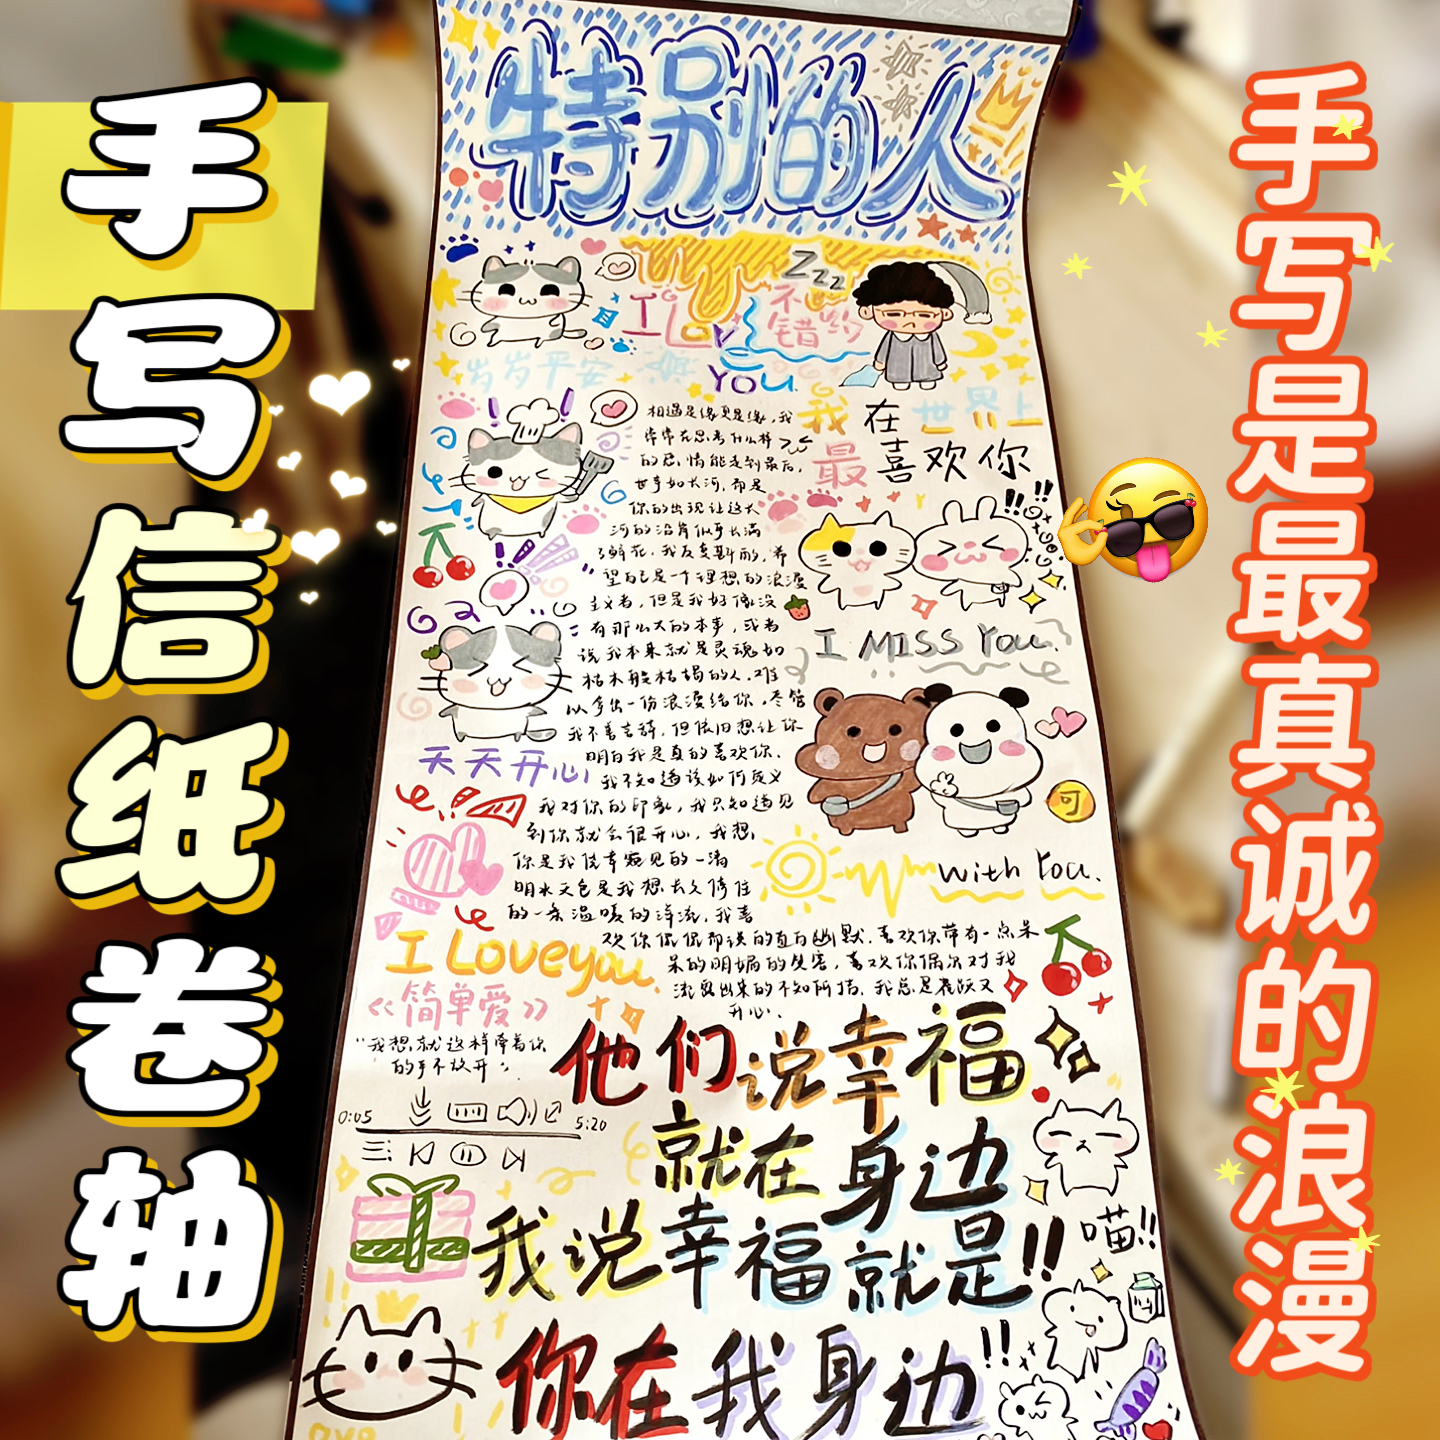 手写信纸卷轴
手写是最真诚的浪漫
特别的人
Zzz
I Love
YOU
不错哟
岁岁平安
我在世界上
最喜欢你
相遇是缘更是缘，我
常常在思考什么样
的恩情能走到最后，
世事如长河，而是
你的出现让这长
河的沿岸似乎长满
了鲜花，我反复斟酌，希
望自己是一个理想的浪漫
主义者，但是我好像没
有那么大的本事，或者
说我本来就是灵魂如
枯木般枯竭的人，难
以拿出一份浪漫给你，尽管
我不善言辞，但依旧想让你
明白我是真的喜欢你，
我不知道该如何定义
我对你的印象，我只知道见
到你就会很开心，我想，
你是我侥幸窥见的一湾
明水又也是我想长久停住
的一条温暖的洋流，我喜
欢你侃侃而谈的直白幽默，喜欢你带有一点呆
呆的明媚的笑容，喜欢你偶尔对我
流露出来的不知所措，我总是雀跃又
开心、
!!!!
I MISS You.
天天开心
可
with You.
I Loveyou.
《简单爱》
“我想就这样牵着你
的手不放开”。
0:05
5:20
他们说幸福
就在身边
我说幸福就是!!
喵!!
你在我身边
!!